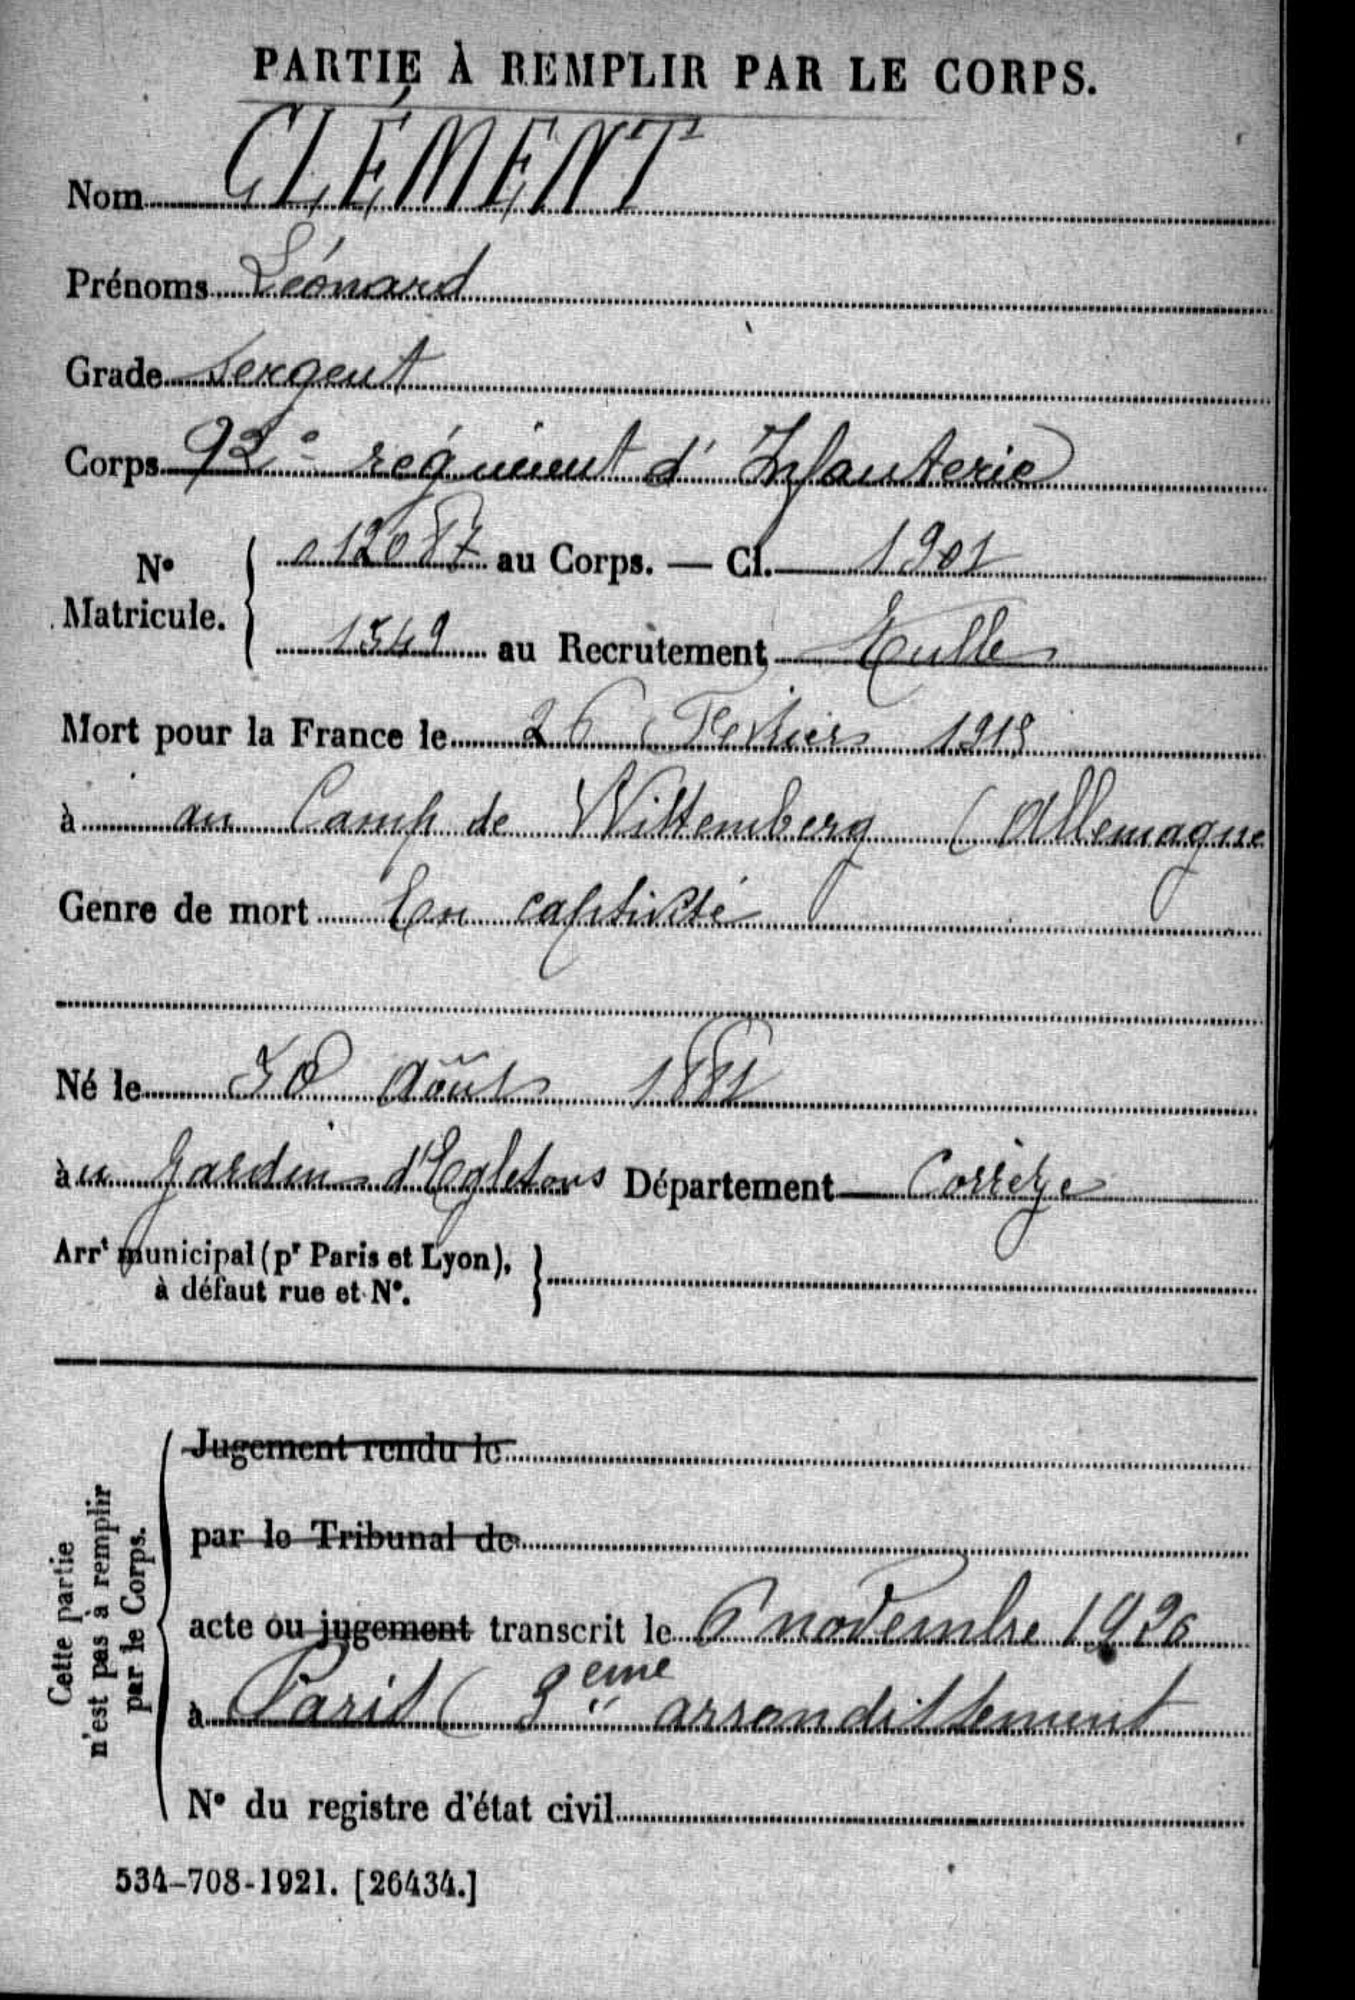 PARTIE À REMPLIR PAR LE CORPS.
Nom CLÉMENT
Prénoms Léonard
Grade Sergent
Corps 92e régiment d'Infanterie
No Matricule. 12087 au Corps. — Cl. 1901
1549 au Recrutement Tulle
Mort pour la France le 26 Février 1915
à au Camp de Wittemberg (Allemagne
Genre de mort En captivité
Né le 30 Août 1881
à u Jardin d'Egletons Département Corrèze
Arrt municipal (pr Paris et Lyon),
à défaut rue et No.
Cette partie
n'est pas à remplir
par le Corps.
Jugement rendu le
par le Tribunal de
acte ou jugement transcrit le 6 novembre 1920
à Paris ( 3eme arrondissement
No du registre d'état civil
534-708-1921. [26434.]